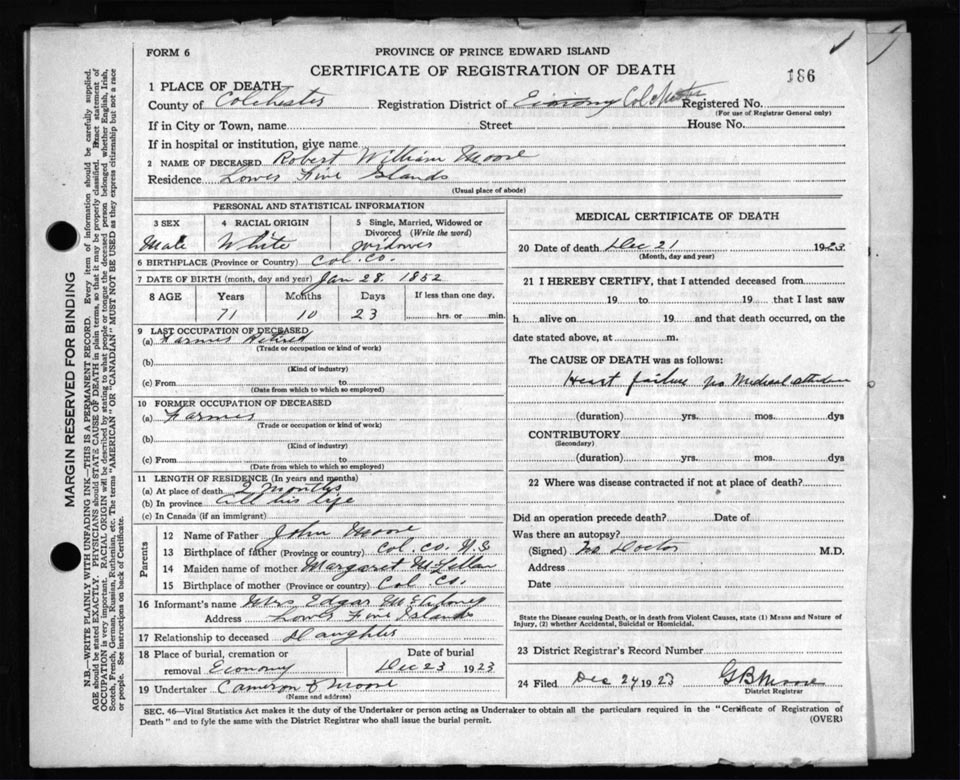 FORM 6
PROVINCE OF PRINCE EDWARD ISLAND
CERTIFICATE OF REGISTRATION OF DEATH
186
1 PLACE OF DEATH
County of Colchester Registration District of Economy Colchester Registered No.
(For use of Registrar General only)
If in City or Town, name Street House No.
If in hospital or institution, give name
2 NAME OF DECEASED Robert William Moore
Residence Lower Five Islands
(Usual place of abode)
PERSONAL AND STATISTICAL INFORMATION
3 SEX 4 RACIAL ORIGIN 5 Single, Married, Widowed or
Divorced (Write the word)
Male White Widower
6 BIRTHPLACE (Province or Country) Col. Co.
7 DATE OF BIRTH (month, day and year) Jan 28. 1852
8 AGE Years Months Days If less than one day,
71 10 23 hrs. or min.
9 LAST OCCUPATION OF DECEASED
(a) Farmer Retired
(Trade or occupation or kind of work)
(b)
(Kind of industry)
(c) From to
(Date from which to which so employed)
10 FORMER OCCUPATION OF DECEASED
(a) Farmer
(Trade or occupation or kind of work)
(b)
(Kind of industry)
(c) From to
(Date from which to which so employed)
11 LENGTH OF RESIDENCE (In years and months)
(a) At place of death 2 months
(b) In province All his life
(c) In Canada (if an immigrant)
Parents
12 Name of Father John Moore
13 Birthplace of father (Province or country) Col. Co. N.S
14 Maiden name of mother Margaret McLellan
15 Birthplace of mother (Province or country) Col Co.
16 Informant's name Mrs Edgar
Address Lower Five Islands
17 Relationship to deceased Daughter
18 Place of burial, cremation or Date of burial
removal Economy Dec 23 1923
19 Undertaker Cameron & Moore
(Name and address)
MEDICAL CERTIFICATE OF DEATH
20 Date of death Dec 21 1923
(Month, day and year)
21 I HEREBY CERTIFY, that I attended deceased from
19 to 19 that I last saw
h alive on 19 and that death occurred, on the
date stated above, at m.
The CAUSE OF DEATH was as follows:
Heart failure no Medical
(duration) yrs. mos. dys
CONTRIBUTORY
(Secondary)
(duration) yrs. mos. dys
22 Where was disease contracted if not at place of death?
Did an operation precede death? Date of
Was there an autopsy?
(Signed) No Doctor M.D.
Address
Date
State the Disease causing Death, or in death from Violent Causes, state (1) Means and Nature of
Injury, (2) whether Accidental, Suicidal or Homicidal.
23 District Registrar's Record Number
24 Filed Dec 24 1923 G B Moore
District Registrar
SEC. 46—Vital Statistics Act makes it the duty of the Undertaker or person acting as Undertaker to obtain all the particulars required in the "Certificate of Registration of
Death" and to fyle the same with the District Registrar who shall issue the burial permit. (OVER)
MARGIN RESERVED FOR BINDING
N.B.—WRITE PLAINLY WITH UNFADING INK.—THIS IS A PERMANENT RECORD. Every item of information should be carefully supplied.
AGE should be stated EXACTLY. PHYSICIANS should STATE CAUSE OF DEATH in plain terms, so that it may be properly classified. Exact statement of
OCCUPATION is very important. RACIAL ORIGIN will be described by stating to what people or tongue the deceased person belonged whether English, Irish,
Scotch, French, German, Russian, Ruthenian, etc. The terms "AMERICAN" OR "CANADIAN" MUST NOT BE USED as they express citizenship but not a race
or people. See instructions on back of Certificate.